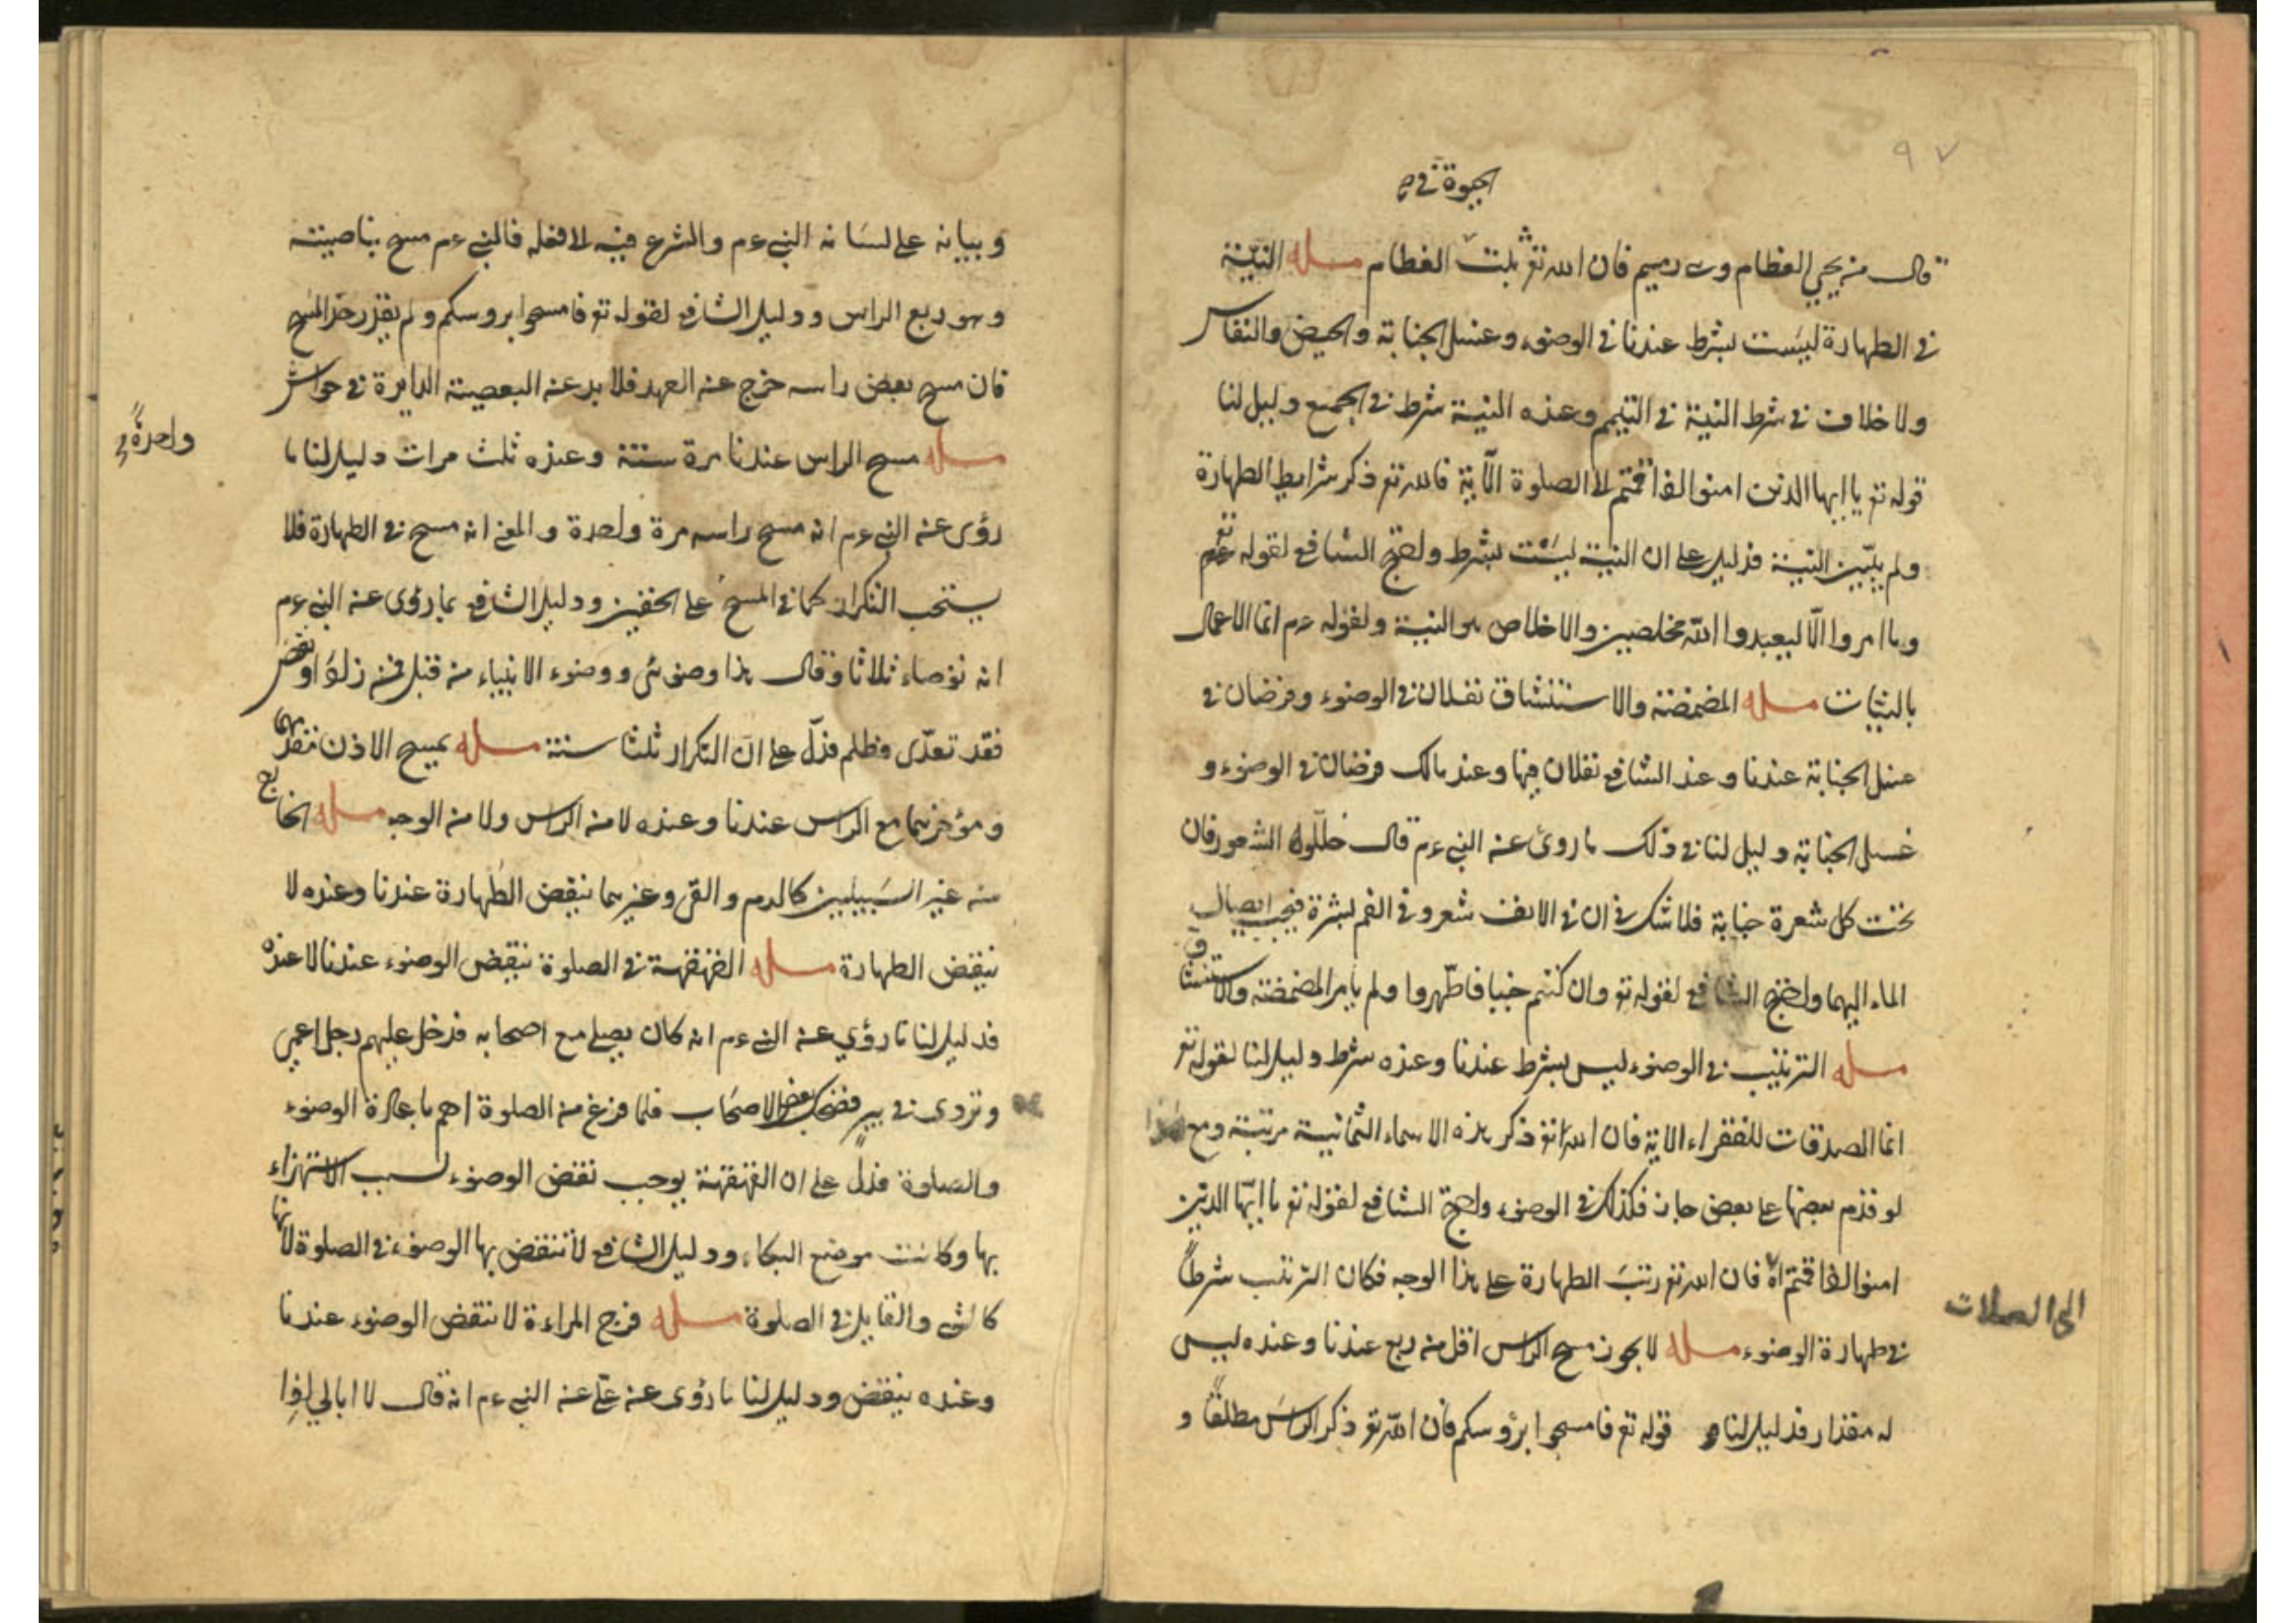 ٩٧
الحيوة في
قال من يحيي العظام وهي رميم فان الله تع يثبت العظام مسله النية
في الطهارة ليست بشرط عندنا في الوضوء وغسل الجنابة والحيض والنفاس
ولا خلاف في شرط النية في التيمم وعنده النية شرط في الجميع دليل لنا
قوله تع يا ايها الذين امنوا اذا قمتم الى الصلوة الآية فالله تع ذكر شرايط الطهارة
ولم يبيّن النية فدليل على ان النية ليست بشرط واحتج الشافع لقوله تع
وما امروا الّا ليعبدوا الله مخلصين والاخلاص هو النية ولقوله عم انما الاعمال
بالنيات مسله المضمضة والاستنشاق نفلان في الوضوء وفرضان في
غسل الجنابة عندنا وعند الشافع نفلان فيها وعند مالك فرضان في الوضوء و
غسل الجنابة دليل لنا في ذلك ما روى عن النبي عم قال خللوا الشعور فان
تحت كل شعرة جنابة فلا شك في ان في الانف شعر وفي الفم بشرة فيجب ايصال
الماء اليهما واحتج الشافع لقوله تع وان كنتم جنبا فاطّهروا ولم يأمر المضمضة والاستنشاق
مسله الترتيب في الوضوء ليس بشرط عندنا وعنده شرط دليل لنا لقوله تع
انما الصدقات للفقراء الاية فان الله تع ذكر هذه الاسماء الثمانية مرتبة ومع هذا
لو قدم بعضها على بعض جاز فكذلك في الوضوء واحتج الشافع لقوله تع يا ايّها الذين
امنوا اذا قمتم اه فان الله تع رتب الطهارة على هذا الوجه فكان الترتيب شرطاً
الى الصلات
في طهارة الوضوء مسله لا يجوز مسح الراس اقل من ربع عندنا وعنده ليس
له مقدار فدليل لنا قوله تع فامسحوا برؤسكم فان الله تع ذكر الراس مطلقاً و
وبيانه على لسانه النبي عم والشرع فيه لا فعله فالنبي عم مسح بناصيته
وهو ربع الراس ودليل الشافع لقوله تع فامسحوا بروسكم ولم يقدر حد المسح
فان مسح بعض راسه خرج عن العهد فلا بد عنه البعضية الدايرة في حواش
مسله مسح الراس عندنا مرة سنة وعنده ثلث مرات دليل لنا ما
واحدةً
رؤى عن النبي عم انه مسح راسه مرة واحدة والمعنى انه مسح في الطهارة فلا
يستحب التكرار كما في المسح على الخفين ودليل الشافع بما رؤى عن النبي عم
انه توضاء ثلاثا وقال هذا وضوئي ووضوء الانبياء من قبل فمن زاد او نقص
فقد تعدّى وظلم فدلّ على ان التكرار ثلثا سنة مسله يمسح الاذن مقدمهما
ومؤخرهما مع الراس عندنا وعنده لا من الراس ولا من الوجه مسله الخارج
من غير السبيلين كالدم والقى وغيرهما ينقض الطهارة عندنا وعنده لا
ينقض الطهارة مسله القهقهة في الصلوة ينقض الوضوء عندنا لا عنده
فدليل لنا ما رؤي عن النبي عم انه كان يصلي مع اصحابه فدخل عليهم رجل اعمى
وتردى في بير فضحك بعض الاصحاب فلما فرغ من الصلوة امرهم باعادة الوضوء
والصلوة فدل على ان القهقهة يوجب نقض الوضوء لسبب الاستهزاء
بها وكانت موضع البكاء ودليل الشافع لا تنقض بها الوضوء في الصلوة لانها
كالشى والقايل في الصلوة مسله فرج المراءة لا تنقض الوضوء عندنا
وعنده ينقض ودليل لنا ما رؤى عن علّى عن النبي عم انه قال لا ابالي اذا